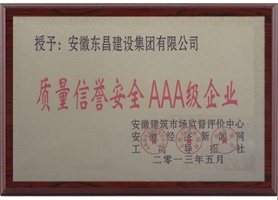 授予：安徽东昌建设集团有限公司
质量信誉安全AAA级企业
安徽建筑市场监督评价中心
安徽经济新闻网
工商导报社
二零一三年五月